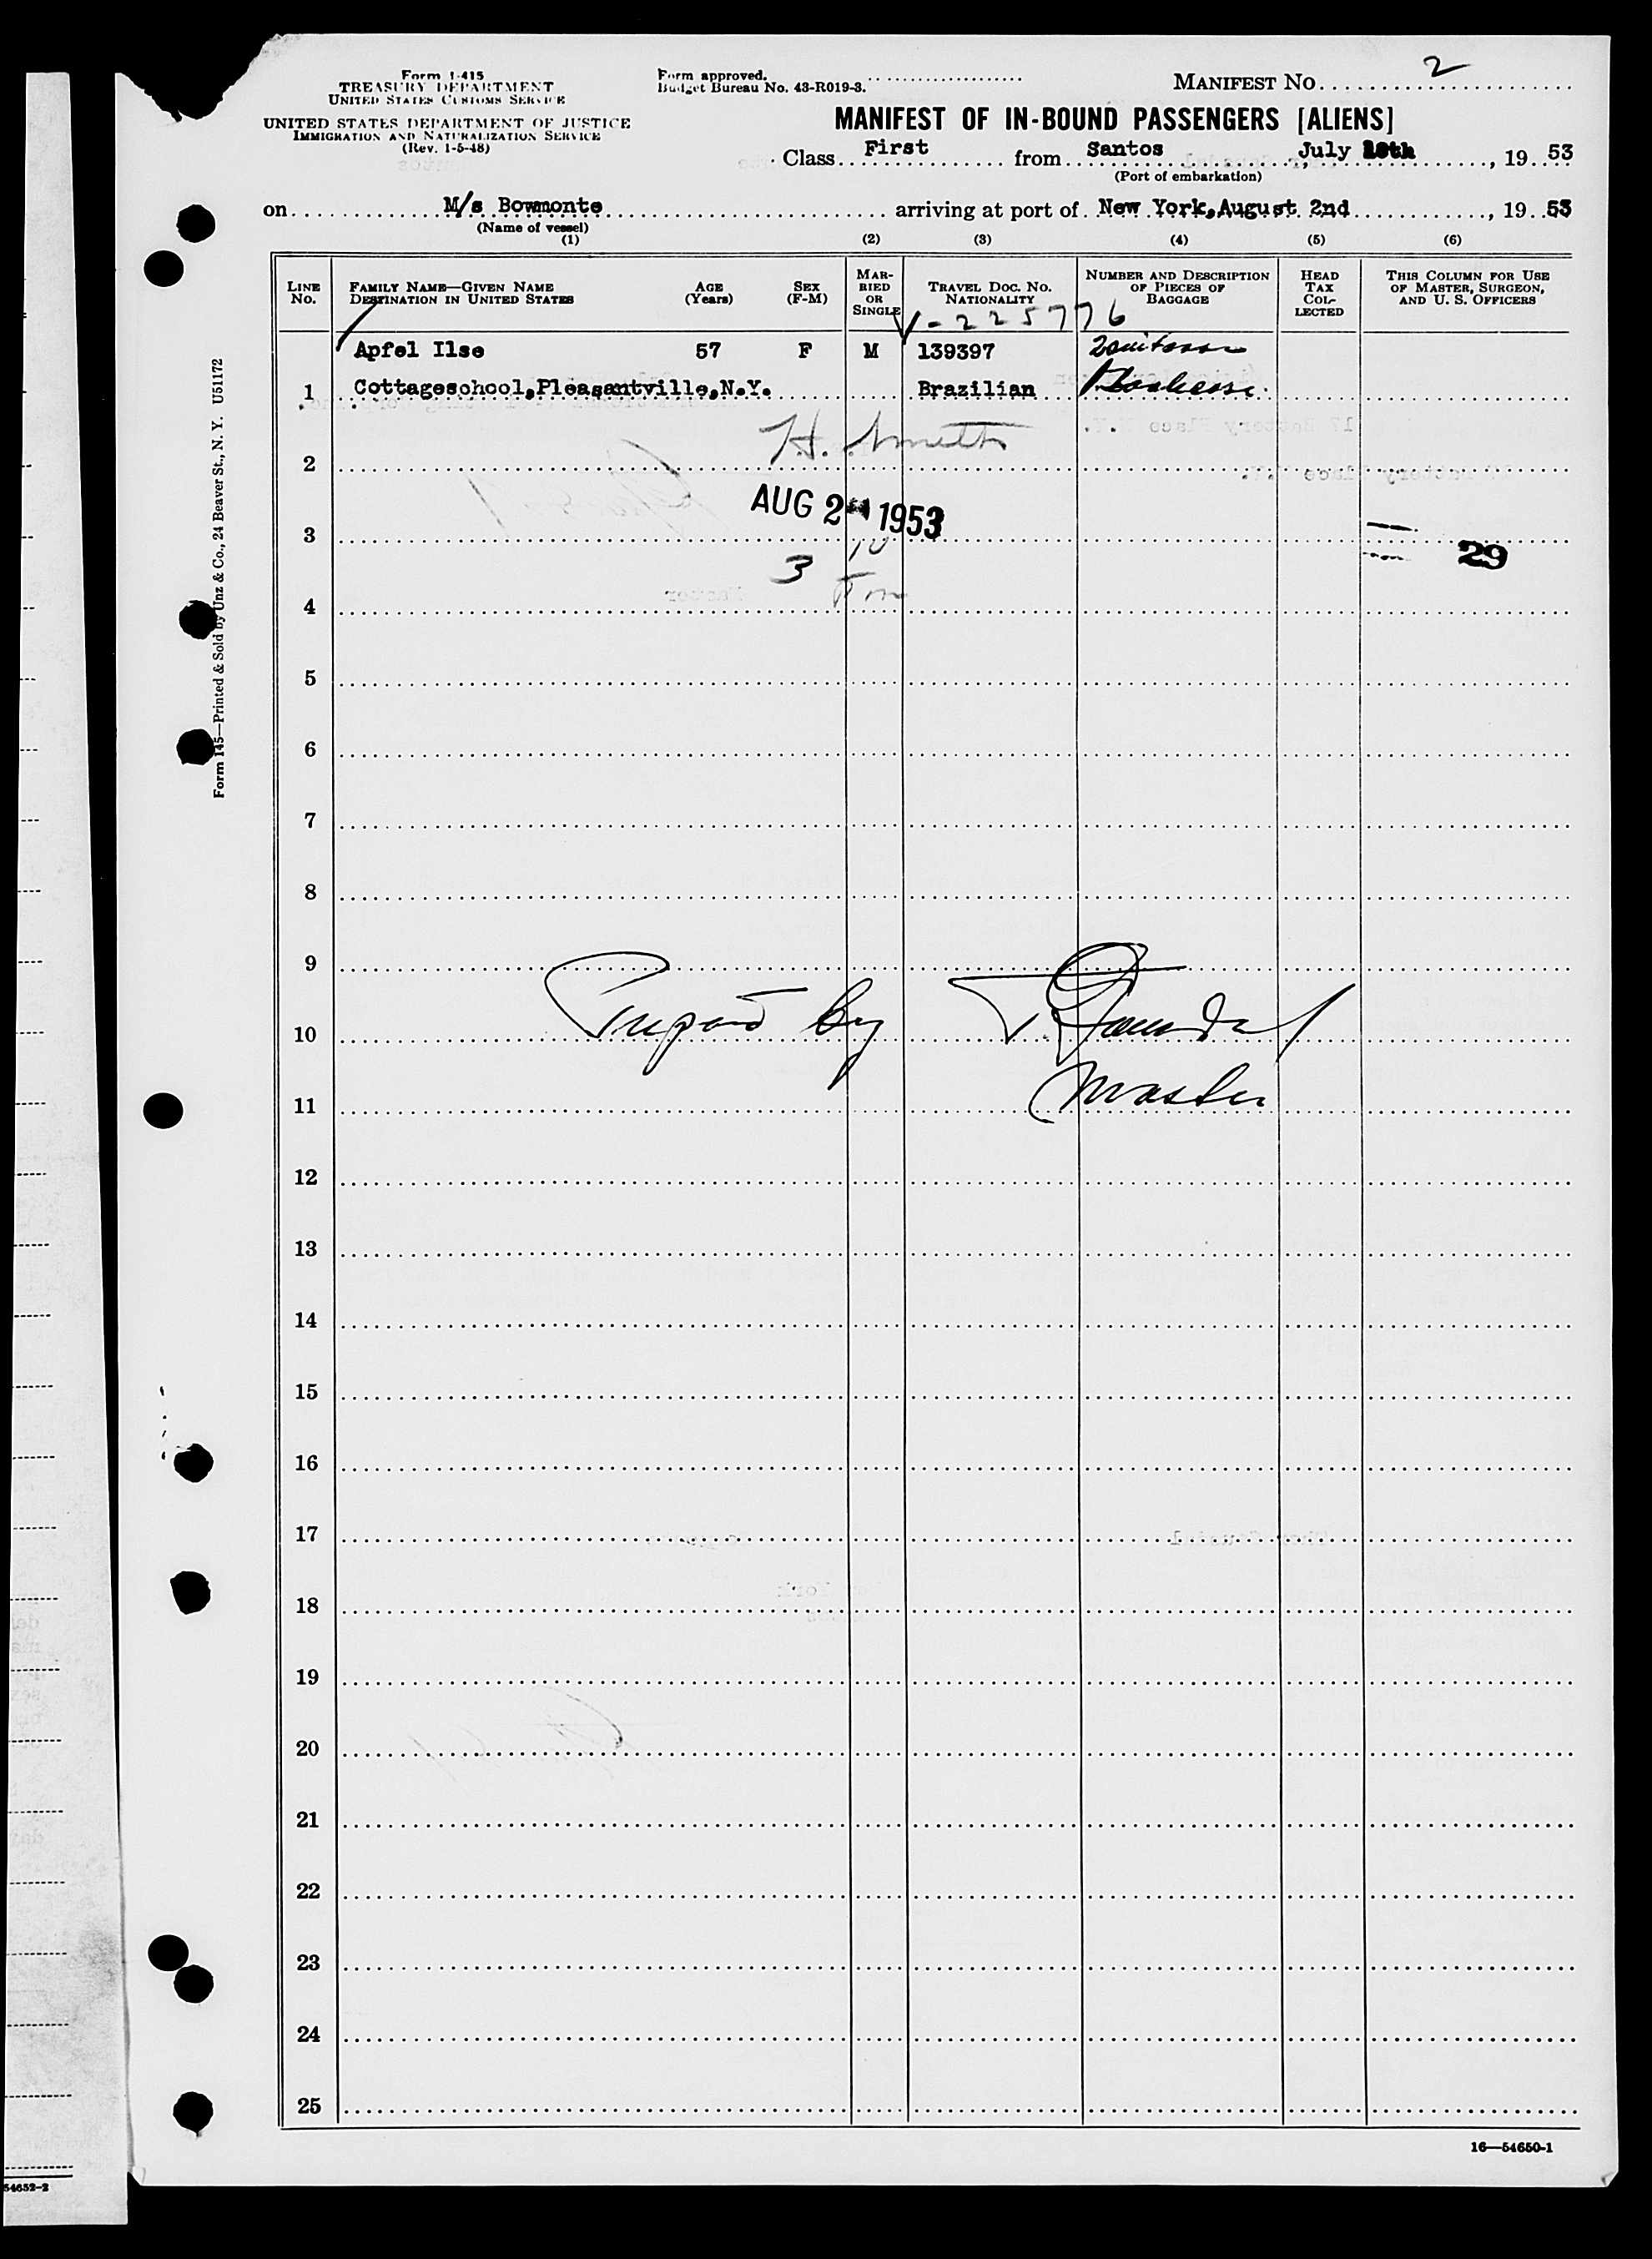 Form I-415
TREASURY DEPARTMENT
UNITED STATES CUSTOMS SERVICE
UNITED STATES DEPARTMENT OF JUSTICE
IMMIGRATION AND NATURALIZATION SERVICE
(Rev. 1-5-48)
Form approved.
Budget Bureau No. 43-R019-3.
MANIFEST NO. 2
MANIFEST OF IN-BOUND PASSENGERS [ALIENS]
Class First from Santos, July, 19 53
(Port of embarkation)
on M/s Bowmonte arriving at port of New York, August 2nd, 19 53
(Name of vessel)
(1) (2) (3) (4) (5) (6)
LINE NO.
FAMILY NAME—GIVEN NAME
DESTINATION IN UNITED STATES
AGE (Years)
SEX (F-M)
MARRIED OR SINGLE
TRAVEL DOC. NO. NATIONALITY
NUMBER AND DESCRIPTION OF PIECES OF BAGGAGE
HEAD TAX COLLECTED
THIS COLUMN FOR USE OF MASTER, SURGEON, AND U. S. OFFICERS
V-225776
Apfel Ilse 57 F M 139397
1 Cottageschool, Pleasantville, N.Y. Brazilian
H. Smith
2
AUG 2 1953
3
29
3 10
4
5
6
7
8
9
10
by
Master
11
12
13
14
15
16
17
18
19
20
21
22
23
24
25
16—54650-1
Form 145—Printed & Sold by Unz & Co., 24 Beaver St., N. Y. U51172
54652-2